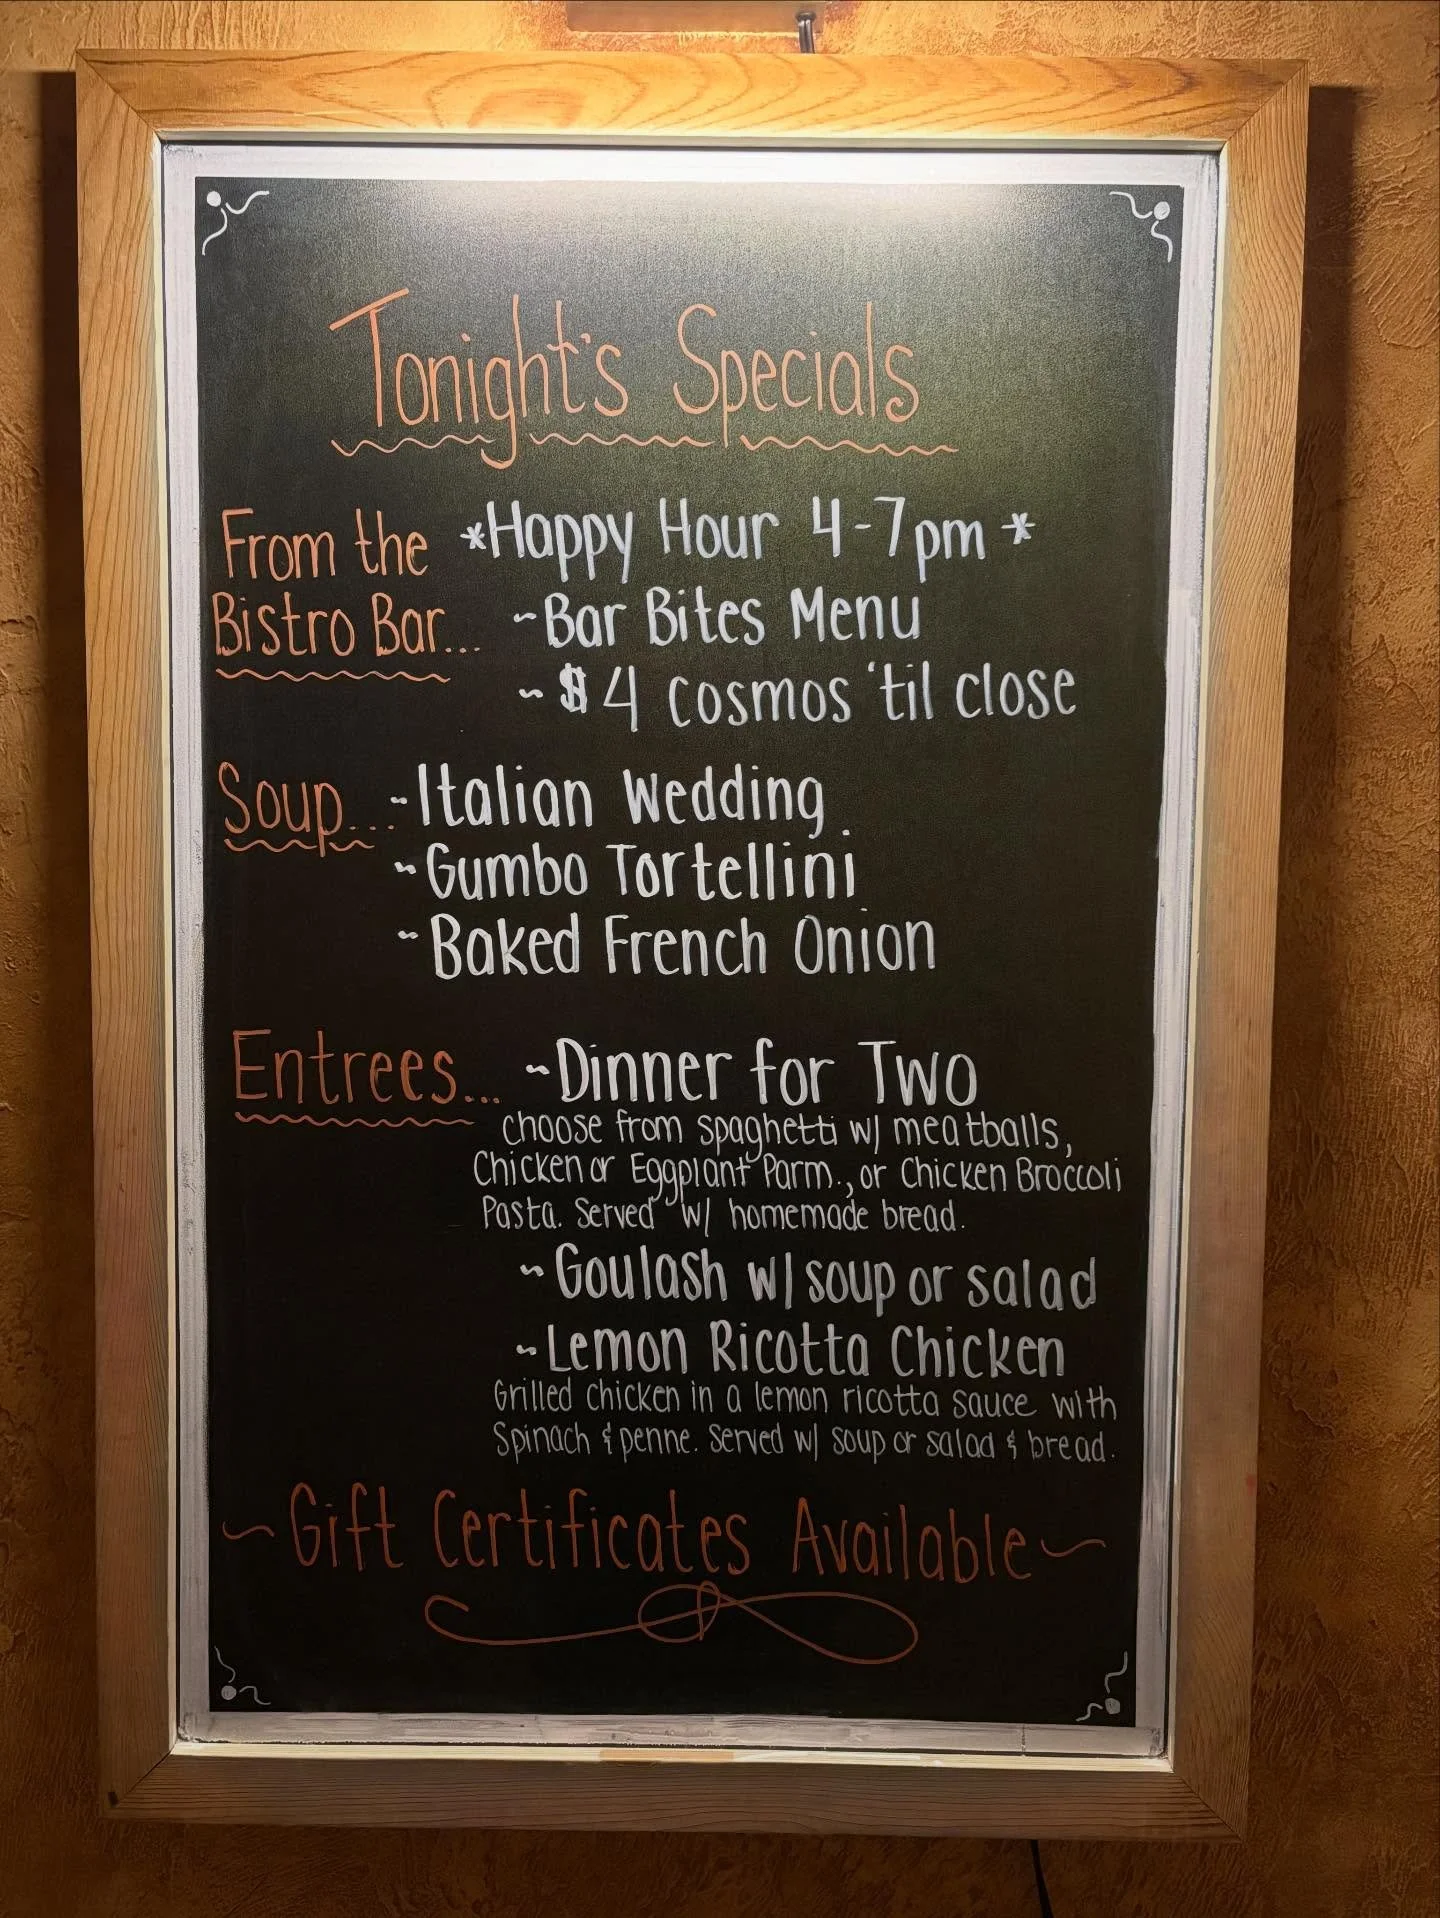 Tonight's Specials
From the *Happy Hour 4-7pm*
Bistro Bar... ~Bar Bites Menu
~ $4 cosmos 'til close
Soup... ~Italian Wedding
~Gumbo Tortellini
~Baked French Onion
Entrees... ~Dinner for Two
choose from spaghetti w/ meatballs,
Chicken or Eggplant Parm., or Chicken Broccoli
Pasta. Served w/ homemade bread.
~Goulash w/ soup or salad
~Lemon Ricotta Chicken
Grilled chicken in a lemon ricotta sauce with
Spinach & penne. Served w/ soup or salad & bread.
~Gift Certificates Available~